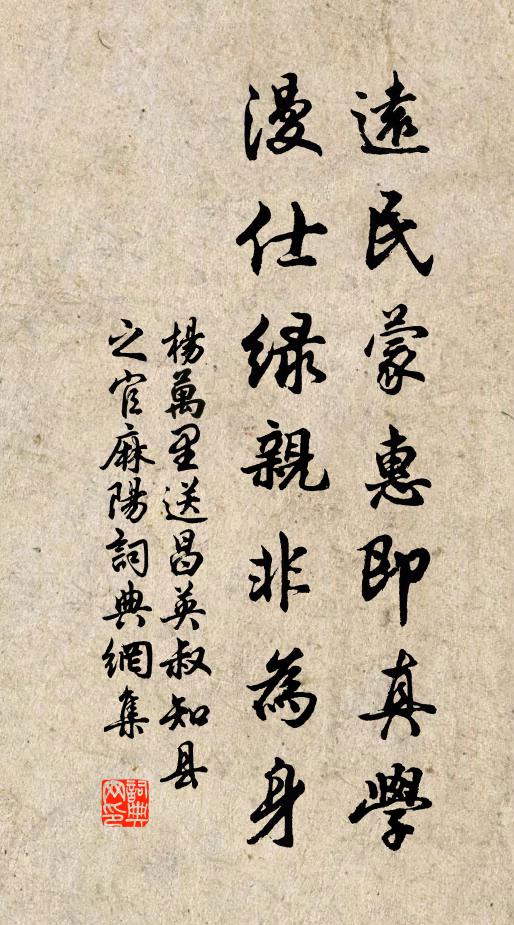 遠民蒙惠即真學
漫仕緑親非為身
楊萬里送昌英叔知县
之官麻陽詞典網集
詞典
网印